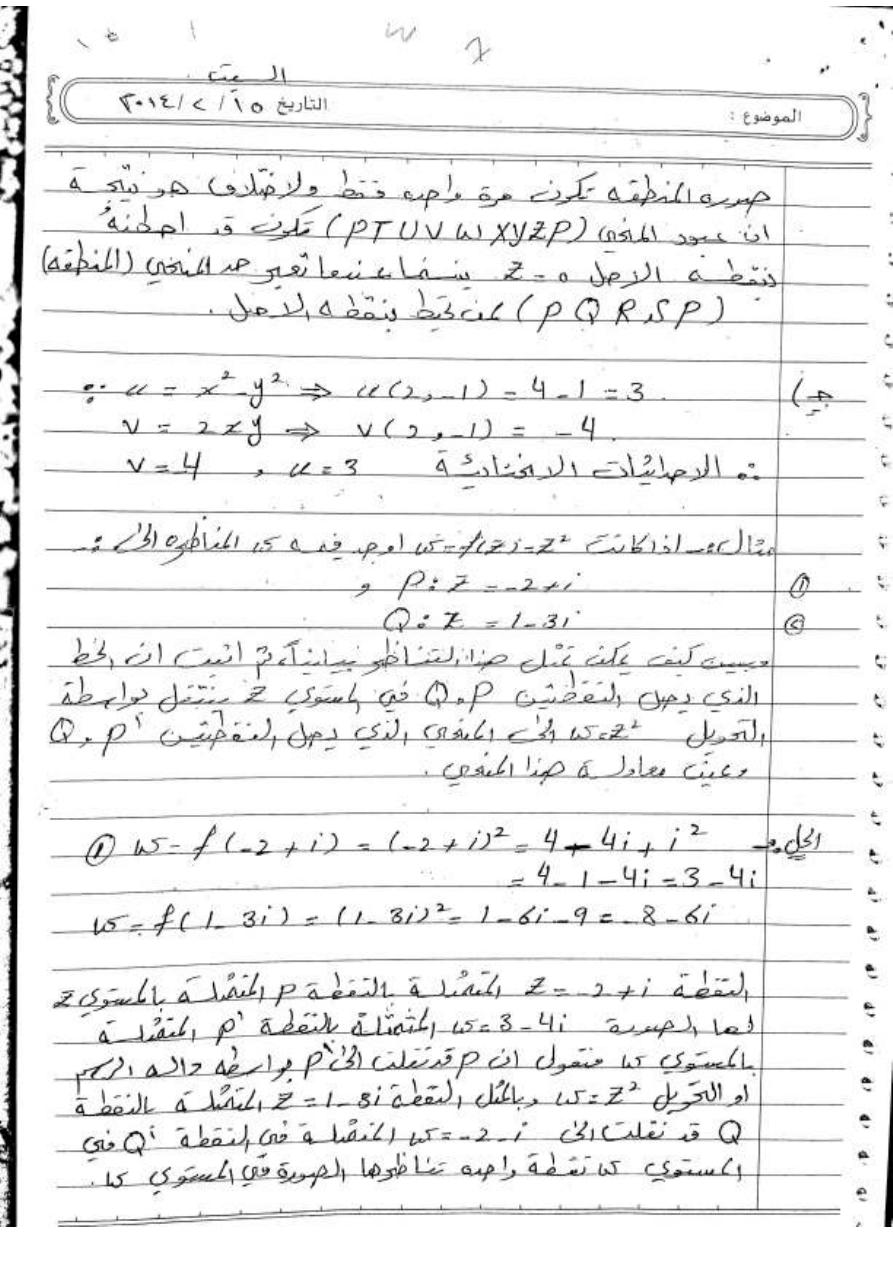 السبت
الموضوع : التاريخ ١٥ / ٢ / ٢٠١٤
صوره المنطقه تكون مرة واحده فقط ولاختلاف هو نتيجة
ان عبود المنحني (PTUVWXYZP) تكون قد احطنه
بنقطه الاصل z=0 بينما عندما تعبر حد المنحني (المنطقه)
(PQRSP) لن تحيط بنقطه الاصل .
جـ) ∵ u = x² - y² ⇒ u(2,-1) = 4-1 = 3 .
v = 2xy ⇒ v(2,-1) = -4 .
∴ الاحداثيات الانحنائية u=3 , v=4
مثال :- اذا كانت w=f(z)=z² اوجد قيمه w المناظره الى :-
① P: z = -2+i و
② Q: z = 1-3i
وبين كيف يمكن تمثل هذا التناظر بيانياً، ثم اثبت ان الخط
الذي يصل النقطتين P و Q في المستوي z ينتقل بواسطة
التحويل w=z² الى المنحني الذي يصل النقطتين P' و Q
وعين معادلة هذا المنحني .
الحل :- ① w = f(-2+i) = (-2+i)² = 4 - 4i + i²
= 4-1-4i = 3-4i
w = f(1-3i) = (1-3i)² = 1-6i-9 = -8-6i
النقطة z=-2+i المتمثلة بالنقطة P المتمثلة بالمستوي z
لها الصورة w=3-4i المتمثلة بالنقطة P' المتمثلة
بالمستوي w فنقول ان P قد نقلت الى P' بواسطه داله الرسم
او التحويل w=z² وبالمثل النقطة z=1-3i المتمثلة بالنقطة
Q قد نقلت الى w=-2-i المتمثلة في النقطة Q' في
المستوي w نقطة واحده تناظرها الصورة في المستوي w .